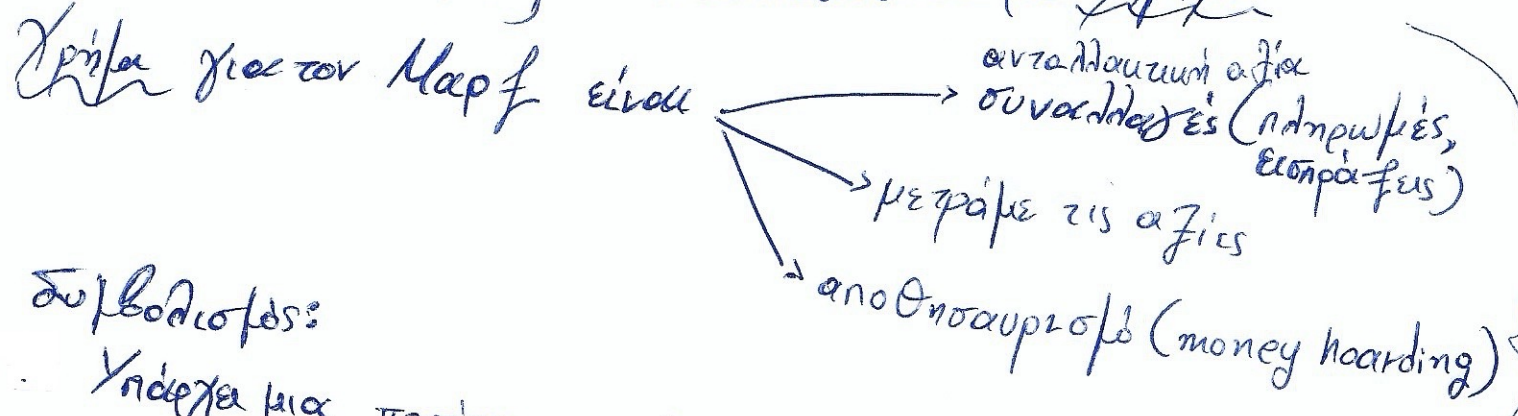 Χρήμα για τον Μαρξ είναι
ανταλλακτική αξία
συναλλαγές (πληρωμές,
εισπράξεις)
μετράμε τις αξίες
αποθησαυρισμό (money hoarding)
συμβολισμός:
Υπάρχει μια